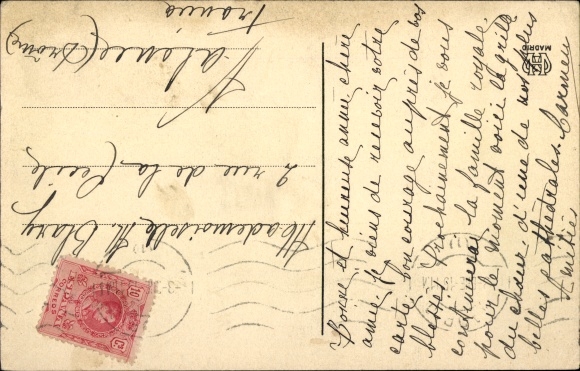 Bonne et heureuse année chère
amie. Je viens de recevoir votre
carte. Bon courage auprès de vos
blessés. Prochainement je vous
continuerai la famille royale,
pour le moment voici la grille
du chœur d'une de nos plus
belles cathédrales.
Amitiés Carmen
MADRID
Mademoiselle M. Blary
2 rue de la
Valence (Drôme)
France
CORREOS
ESPAÑA
10 CTS